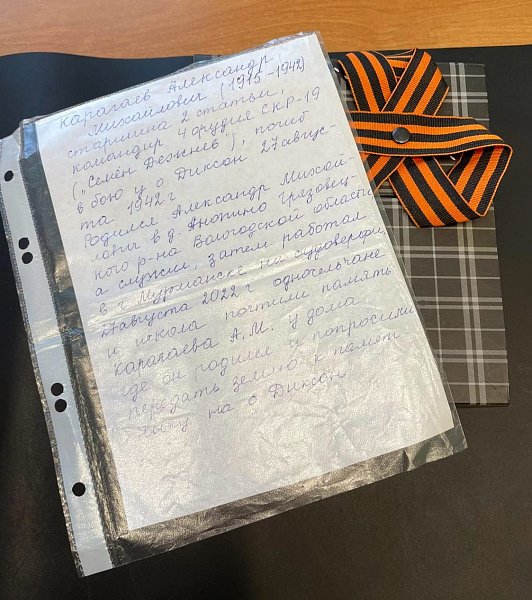 Карагаев Александр
Михайлович (1915-1942)
старшина 2 статьи,
командир 4 орудия СКР-19
("Семён Дежнев"), погиб
в бою у о Диксон 27 авгус-
та 1942 г.
Родился Александр Михай-
лович в д. Анопино Грязовец-
кого р-на Вологодской области
а служил, затем работал
в г. Мурманске на судоверфи,
27 августа 2022 г односельчане
и школа почтили память
Карагаева А.М. у дома
где он родился и попросили
передать землю к памят
нику на о Диксон